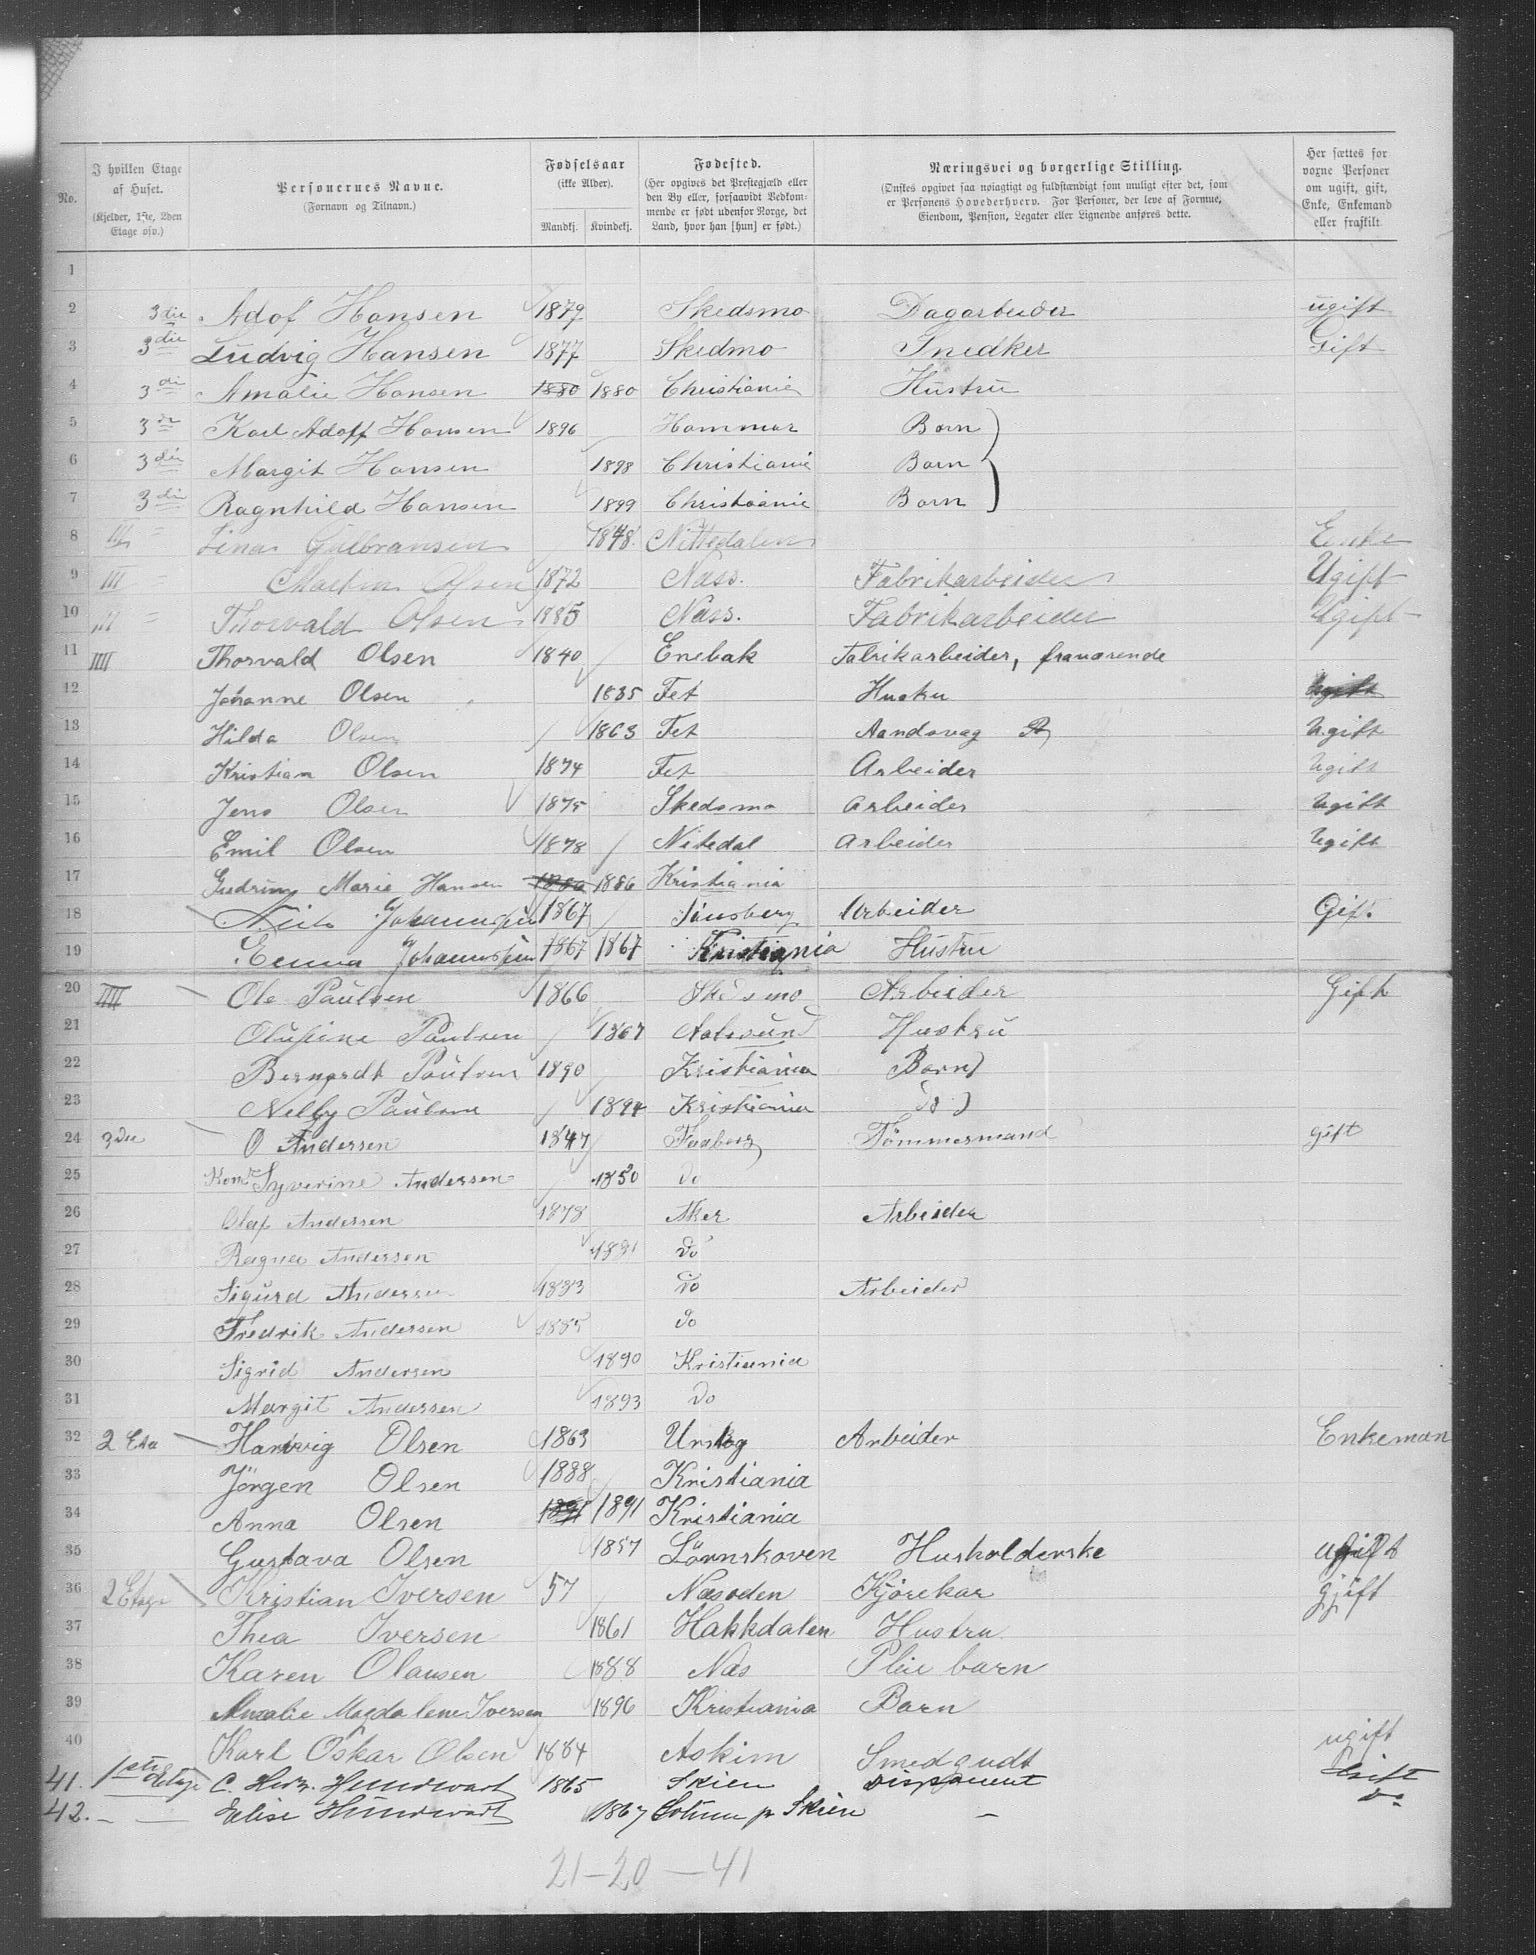 No.
I hvilken Etage af Huset. (Kjelder, 1ste, 2den Etage osv.)
Personernes Navne. (Fornavn og Tilnavn.)
Fødselsaar (ikke Alder). Mandkj. Kvindekj.
Fødested. (Her opgives det Prestegjæld eller den By eller, forsaavidt Vedkommende er født udenfor Norge, det Land, hvor han [hun] er født.)
Næringsvei og borgerlige Stilling. (Ønskes opgivet saa nøiagtigt og fuldstændigt som muligt efter det, som er Personens Hovederhverv. For Personer, der leve af Formue, Eiendom, Pension, Legater eller Lignende anføres dette.)
Her sættes for voxne Personer om ugift, gift, Enke, Enkemand eller fraskilt
1
2 3die Adof Hansen 1879 Skedsmo Dagarbeider ugift
3 3die Ludvig Hansen 1877 Skedmo Snedker Gift
4 3di Amalie Hansen 1880 1880 Christiania Hustru
5 3di Karl Adoff Hansen 1896 Hammar Barn
6 3die Margit Hansen 1898 Christiania Barn
7 3die Ragnhild Hansen 1899 Christiania Barn
8 III Lina Gulbransen 1848 Nittedalen Enke
9 III Martin Olsen 1872 Næss. Fabrikarbeider Ugift
10 III Thorvald Olsen 1885 Næss. Fabrikarbeider Ugift
11 IIII Thorvald Olsen 1840 Enebak Fabrikarbeider, fraværende
12 Johanne Olsen 1835 Fet Hustru
13 Hilda Olsen 1863 Fet Aandsvag Ugift
14 Kristian Olsen 1874 Fet Arbeider Ugift
15 Jens Olsen 1875 Skedsmo Arbeider Ugift
16 Emil Olsen 1878 Nitedal Arbeider Ugift
17 Gudrun Marie Hansen 1886 Kristiania
18 Johannesen 1867 Tønsberg Arbeider Gift
19 Emma Johannesen 1867 1867 Kristiania Hustru
20 IIII Ole Paulsen 1866 Skesmo Arbeider Gift
21 Olufine Paulsen 1867 Aalesund Hustru
22 Bernardt Paulsen 1890 Kristiania Barn
23 Nelly Paulsen 1894 Kristiania do
24 3die O Andersen 1847 Faaberg Tømmermand gift
25 Kone Syverine Andersen 1850 do
26 Olaf Andersen 1878 Aker Arbeider
27 Ragna Andersen 1881 do
28 Sigurd Andersen 1883 do Arbeider
29 Fredrik Andersen 1885 do
30 Sigrid Andersen 1890 Kristiania
31 Margit Andersen 1893 do
32 2 Eta Hartvig Olsen 1863 Urskog Arbeider Enkeman
33 Jörgen Olsen 1888 Kristiania
34 Anna Olsen 1891 1891 Kristiania
35 Gustava Olsen 1857 Lörnskoven Husholderske ugift
36 2 Etage Kristian Iversen 57 Næsoden Kjörekar gjift
37 Thea Iversen 1861 Hakkdalen Hustru
38 Karen Olausen 1888 Næs Pleie barn
39 Amalie Magdalene Iversen 1896 Kristiania Barn
40 Karl Oskar Olsen 1884 Askim Smedgudt ugift
41. 1ste etage C. Herm. Hundwart 1865 Skien Disponent Gift
42. — — Elise Hundwart 1867 Solum pr Skien — do
21-20-41